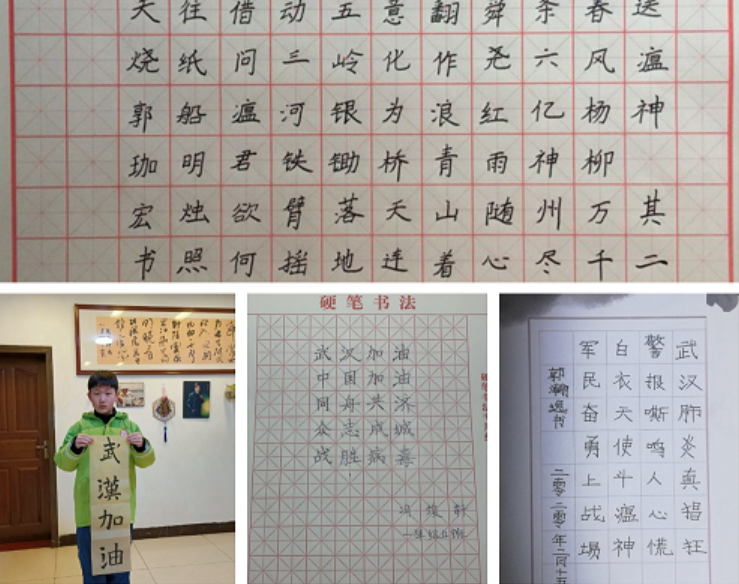 送瘟神 其二
春风杨柳万千
条六亿神州尽
舜尧红雨随心
翻作浪青山着
意化为桥天连
五岭银锄落地
动三河铁臂摇
借问瘟君欲何
往纸船明烛照
天烧郭珈宏书
武漢加油
硬笔书法
武汉加油
中国加油
同舟共济
众志成城
战胜病毒
武汉肺炎真猖狂
警报嘶鸣人心慌
白衣天使斗瘟神
军民奋勇上战场
郭瀚逸书 二零二零年二月十五